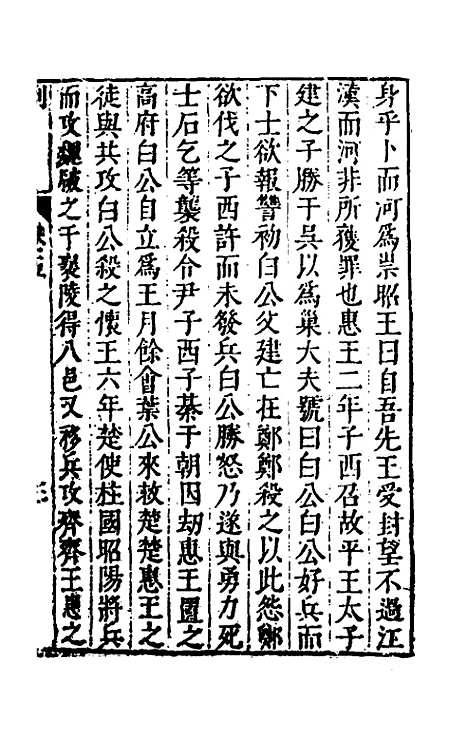 身乎卜而河爲祟昭王曰自吾先王受封望不過江
漢而河非所獲罪也惠王二年子西召故平王太子
建之子勝于吳以爲巢大夫號曰白公白公好兵而
下士欲報讐初白公父建亡在鄭鄭殺之以此怨鄭
欲伐之子西許而未發兵白公勝怒乃遂與勇力死
士石乞等襲殺令尹子西子綦于朝因劫惠王置之
高府白公自立爲王月餘會葉公來救楚楚惠王之
徒與共攻白公殺之懷王六年楚使柱國昭陽將兵
而攻魏破之于襄陵得八邑又移兵攻齊齊王患之